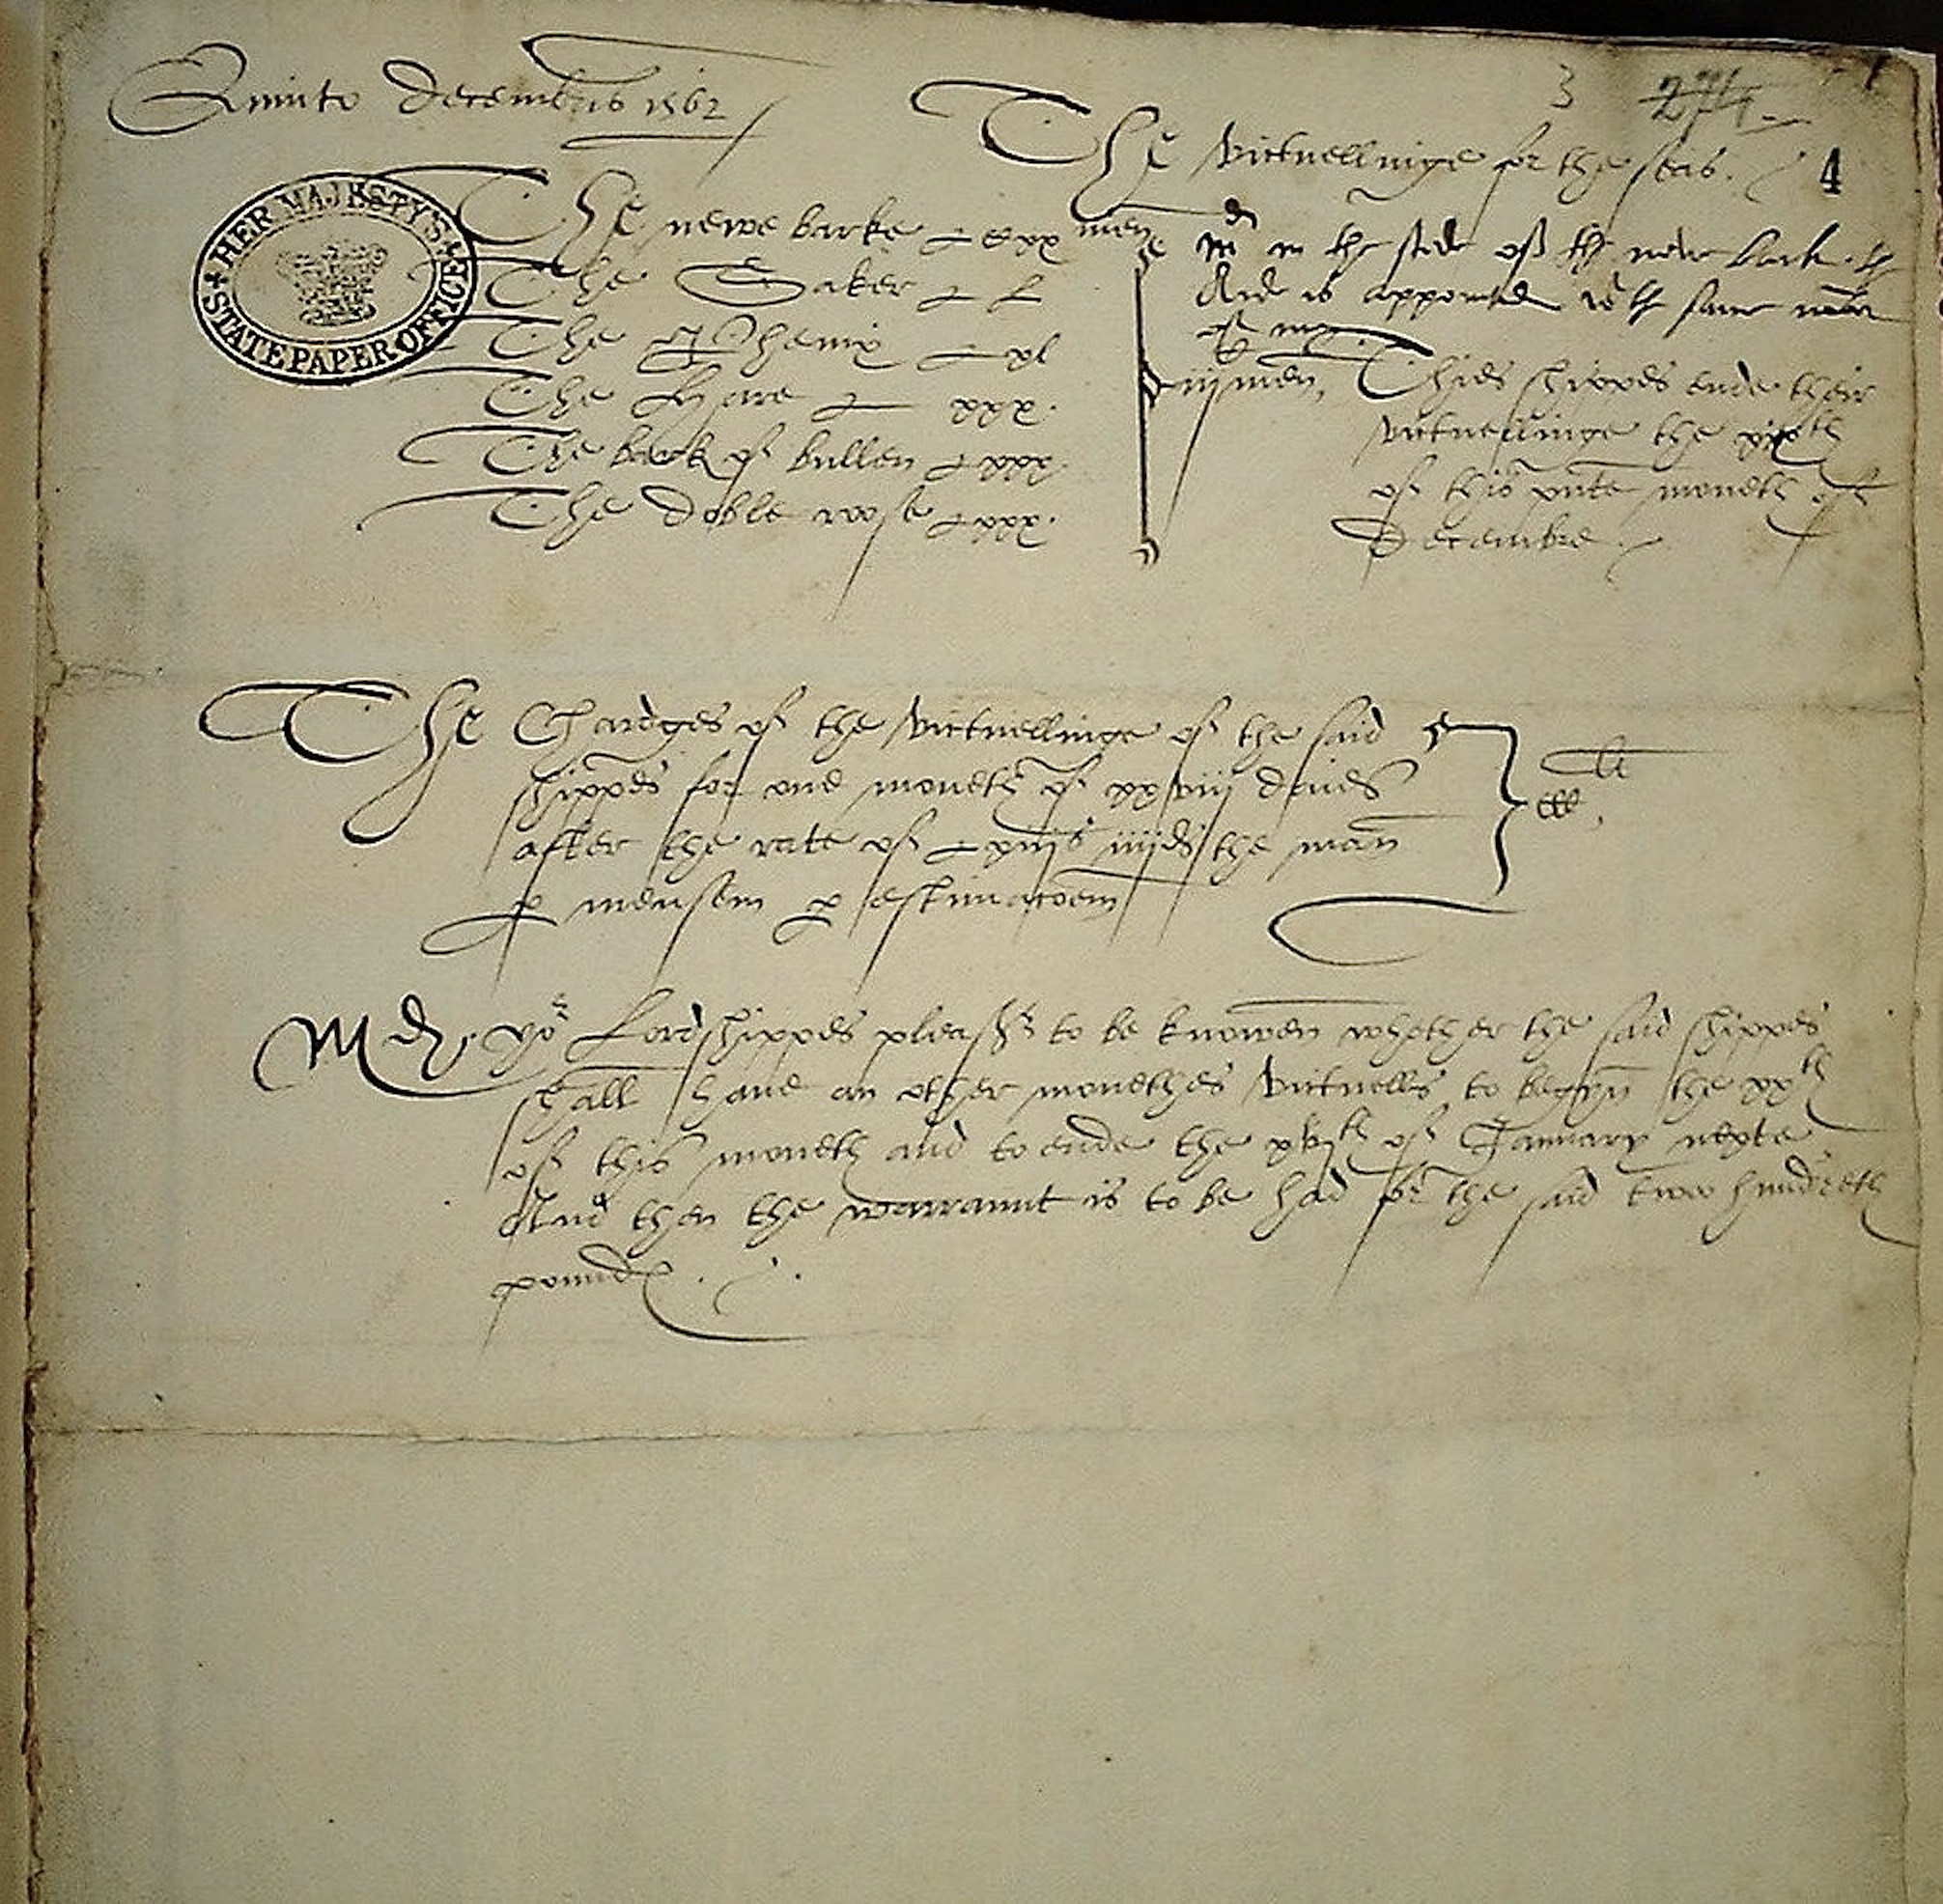 Quinto decembris 1562
3 274
The victuellinge for the seas. 4
HER MAJESTY'S STATE PAPER OFFICE
The newe barke – cxx men
The Saker – l
The Phenix – xl
The Hare – xxx.
The bark of bullen – xxx.
The doble rose – xxx.
md in the stede off the newe bark. the
Aide is appointed wt the same nombr
of men
iij men,
Thies shippes ende their
victuellinge the xixth
of this pnte moneth of
Decembre
The Chardges of the victuellinge of the said
shippes for one moneth of xxviij daies
after the rate of – xiijs iiijd the man
p mensem p estimacoem
li
cc
Md yor Lordshippes pleassr to be knowen whether the said shippes
shall have an other monethes victuells to begyn the xxth
of this moneth and to ende the xvjth of January nexte
And then the warraunt is to be had for the said two hundreth
poundes